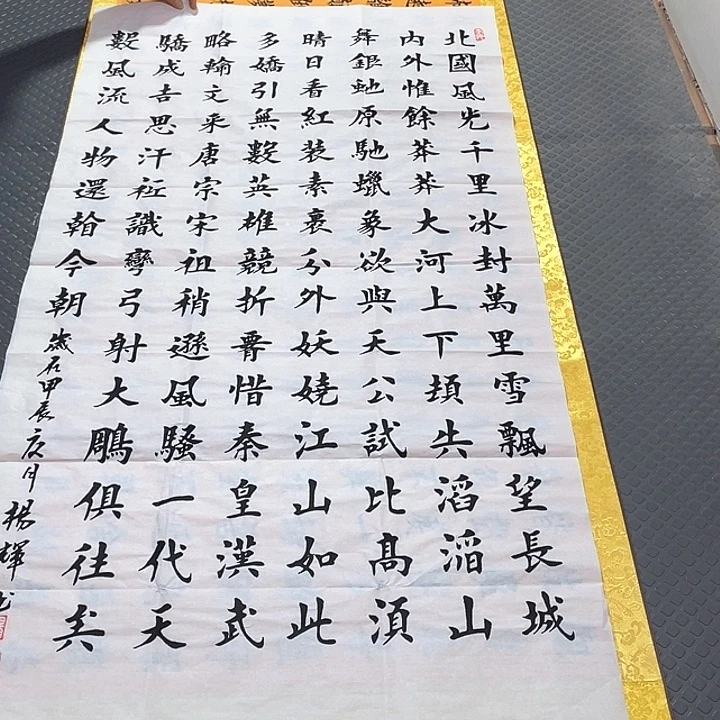 北國風光千里冰封萬里雪飄望長城
内外惟餘莽莽大河上下頓失滔滔山
舞銀虵原馳蠟象欲與天公試比高須
晴日看紅裝素裹分外妖嬈江山如此
多嬌引無數英雄競折腰惜秦皇漢武
略輸文采唐宗宋祖稍遜風騷一代天
驕成吉思汗衹識彎弓射大鵰俱往矣
數風流人物還看今朝
歲在甲辰月楊輝